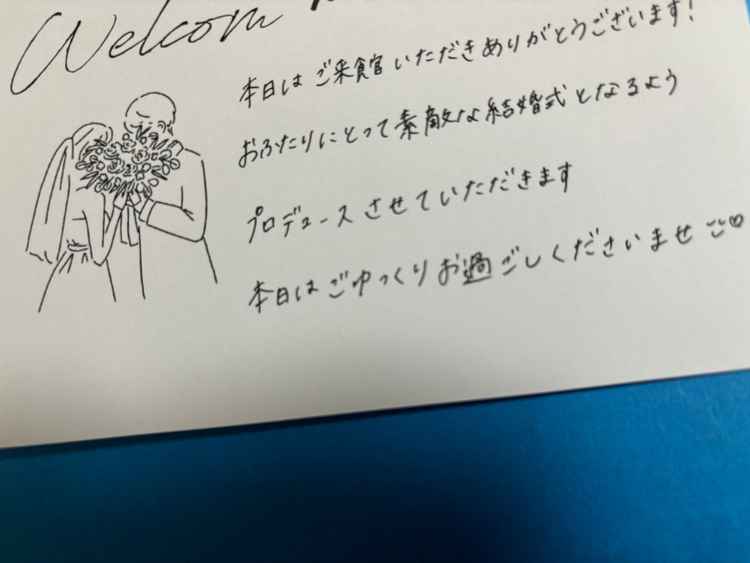 Welcom
本日はご来館いただきありがとうございます!
おふたりにとって素敵な結婚式となるよう
プロデュースさせていただきます
本日はごゆっくりお過ごしくださいませ